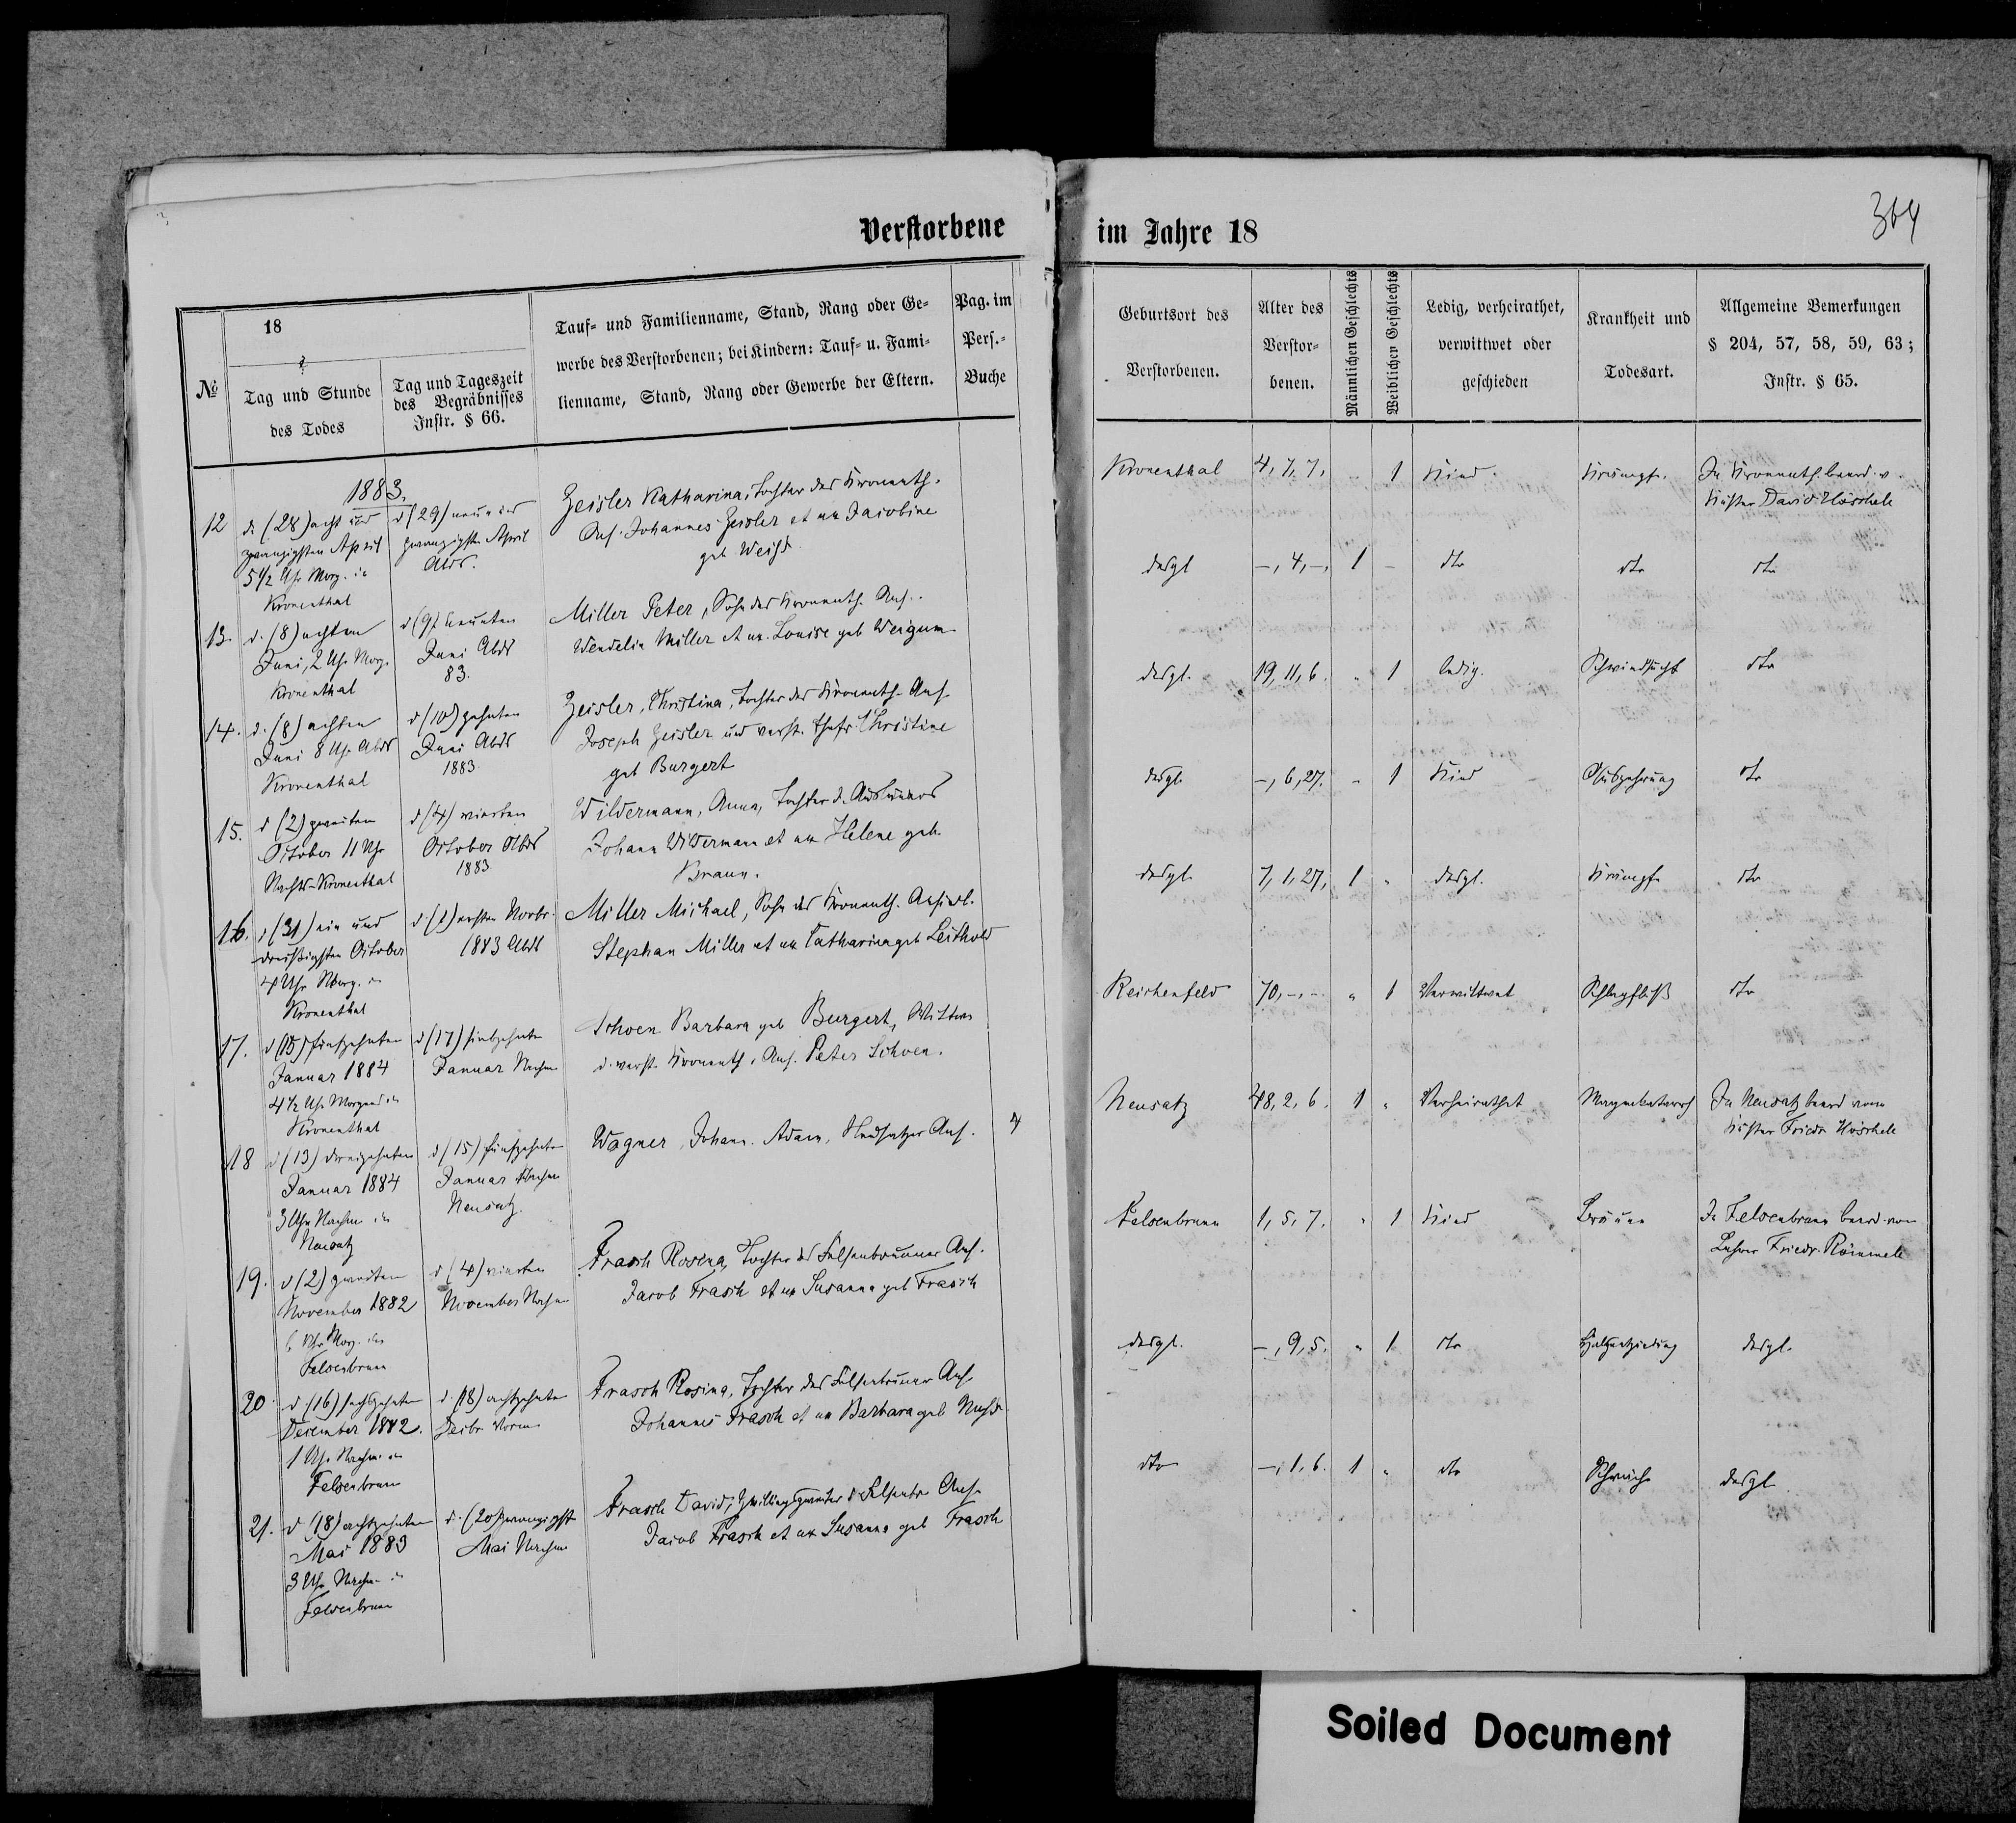 Verstorbene
im Jahre 18
364
№
18
Tag und Stunde
des Todes
Tag und Tageszeit
des Begräbnisses
Instr. § 66.
Tauf- und Familienname, Stand, Rang oder Ge-
werbe des Verstorbenen; bei Kindern: Tauf- u. Fami-
lienname, Stand, Rang oder Gewerbe der Eltern.
Pag. im
Pers.-
Buche
Geburtsort des
Verstorbenen.
Alter des
Verstor-
benen.
Männlichen Geschlechts
Weiblichen Geschlechts
Ledig, verheirathet,
verwittwet oder
geschieden
Krankheit und
Todesart.
Allgemeine Bemerkungen
§ 204, 57, 58, 59, 63;
Instr. § 65.
1883.
12
d. (28) acht und
zwanzigsten April
5 1/2 Uhr Morg. in
Kronenthal
d (29) neun und
zwanzigsten April
Abds.
Zeisler Katharina, Tochter des Kronenth.
Ans. Johannes Zeisler et ux Jacobine
geb Weiss
Kronenthal
4, 7, 7,
1
Kind.
Krämpfe.
In Kronenth. beerd. v.
Küster David Höschele
13.
d. (8) achten
Juni, 2 Uhr Morg.
Kronenthal
d (9) neunten
Juni Abds
83.
Miller Peter, Sohn des Kronenth. Ans.
Wendelin Miller et ux. Louise geb Weigum
desgl
-, 4, -,
1
-
dto
dto
dto
14.
d. (8) achten
Juni 8 Uhr Abds
Kronenthal
d (10) zehnten
Juni Abds
1883.
Zeisler, Christina, Tochter des Kronenth. Ans.
Joseph Zeisler und verst. Ehefr. Christine
geb Burgert
desgl.
19, 11, 6.
"
1
ledig.
Schwindsucht
dto
15.
d (2) zweiten
October 11 Uhr
Nachts-Kronenthal
d (4) vierten
October Abds
1883
Wildermann, Anna, Tochter d.
Johann Wildermann et ux Helene geb.
Braun.
desgl.
-, 6, 27.
-
1
Kind
Auszehrung
dto
16.
d (31) ein und
dreißigsten October
4 Uhr Morg. in
Kronenthal
d. (1) ersten Novbr.
1883 Abds
Miller Michael, Sohn des Kronenth. Ansiedl.
Stephan Miller et ux Catharina geb Leithold
desgl.
7, 1, 27,
1
"
desgl.
Krämpfe
dto
17.
d (15) fünfzehnten
Januar 1884
4 1/2 Uhr Morgens in
Kronenthal
d (17) siebzehnten
Januar Nachm.
Schoen Barbara geb Burgert, Wittwe
d. verst. Kronenth. Ans. Peter Schoen.
Reichenfeld
70, -, -
"
1
Verwittwet
Schlagfluß
dto
18
d (13) dreizehnten
Januar 1884
3 Uhr Nachm. in
Neusatz
d (15) fünfzehnten
Januar Nachm
Neusatz.
Wagner, Johann Adam, Neusatzer Ans.
4
Neusatz
48, 2, 6.
1
"
Verheirathet
Magenkatarrh
In Neusatz beerd vom
Küster Friedr Höschele
19.
d (2) zweiten
November 1882
6 Uhr Morg. in
Felsenbrunn
d (4) vierten
November Nachm
Frasch Rosina, Tochter des Felsenbrunner Ans.
Jacob Frasch et ux Susanna geb Frasch
Felsenbrunn
1, 5, 7.
"
1
Kind
Bräune
In Felsenbrunn beerd. von
Lehrer Friedr. Römmele
20.
d (16) sechzehnten
December 1882.
1 Uhr Nachm. in
Felsenbrunn
d. (18) achtzehnten
Decbr. Vorm.
Frasch Rosina, Tochter des Felsenbrunner Ans.
Johannes Frasch et ux Barbara geb
desgl.
-, 9, 5.
"
1
dto
Halsentzündung
desgl.
21.
d (18) achtzehnten
Mai 1883
3 Uhr Nachm. in
Felsenbrunn
d. (20) zwanzigst
Mai Nachm
Frasch David, Felsenbr. Ans.
Jacob Frasch et ux Susanna geb Frasch
dto
-, 1, 6.
1
"
dto
Schwäche
desgl.
Soiled Document